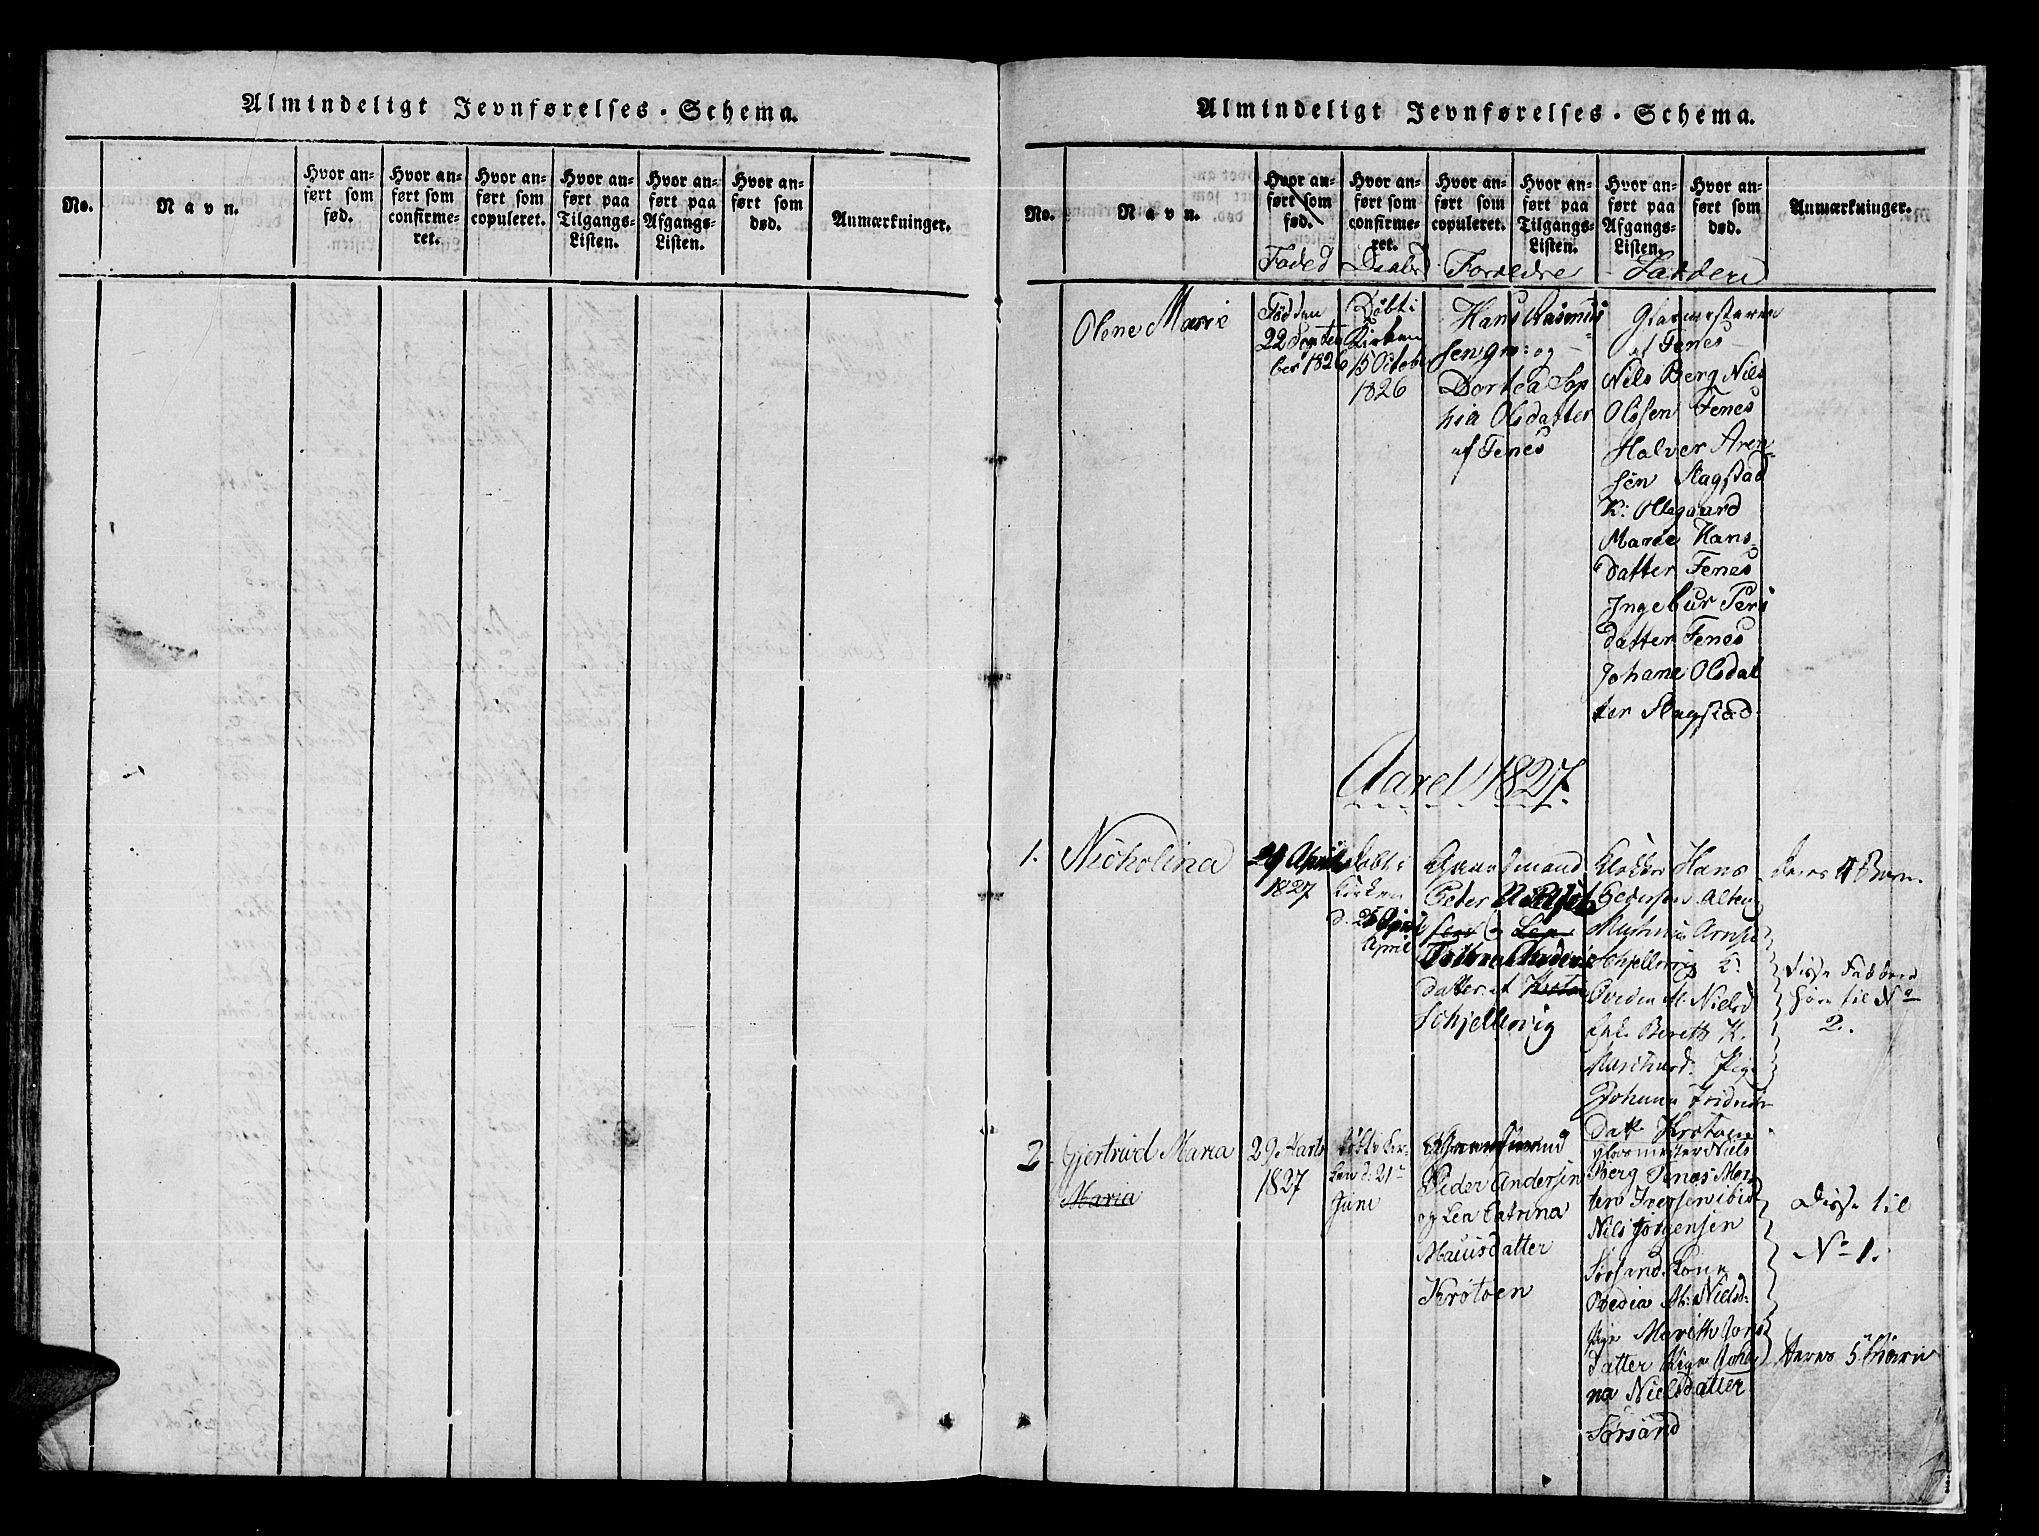 Almindeligt Jevnførelses-Schema.
No.
Navn.
Hvor an-
ført som
fød.
Hvor an-
ført som
confirme-
ret.
Hvor an-
ført som
copuleret.
Hvor an-
ført paa
Tilgangs-
Listen.
Hvor an-
ført paa
Afgangs-
Listen.
Hvor an-
ført som
død.
Anmærkninger.
Almindeligt Jevnførelses-Schema.
No.
Navn.
Hvor an-
ført som
fød.
Hvor an-
ført som
confirme-
ret.
Hvor an-
ført som
copuleret.
Hvor an-
ført paa
Tilgangs-
Listen.
Hvor an-
ført paa
Afgangs-
Listen.
Hvor an-
ført som
død.
Anmærkninger.
Føded
Forældre
Faddere
Olene Marie
Fød den
22 Septem
ber 1826
Døbt i
Kirken
15 Octob
1826
Hans Rasmus
sen gm: og
Dortea Sop
hia Olsdatter
af Fenes
Glasmesteren
af Fenes
Nils Berg Nils
Olssen Fenes
Halver Aren
sen Slagstad
K: Oltegaard
Marie Hans
datter Fenes
Ingebur Pers
datter Fenes
Johane Olsdat
ter Slagstad
Aaret 1827
1.
Nicholina
April
1827
døbt i
Kirken
d. 25 April
April
Gaardmand
Peter
sen
datter af
Schjellevig
Klokker Hans
Pedersen Alteng
Schjellevig K.
M: Nielsd
Bereth K.
Pige
Johanna
Datt Krøtøen
deres 4 Barn
disse Faddere
høre til No
2.
2
Gjertrud Maria
Maria
29 Marts
1827
døbt i Kir-
ken d: 21de
Juni
Peder Andersen
og Lea Catrina
Mausdatter
Krøtøen
Glasmester Niels
Berg Fenes Mor
ten Iversen ibid
Nils Jörgensen
Sørsand Kone
M: Nielsd:
Pige Marith Jons
datter Pige Joha
na Nielsdatter
Sørsand
disse til
No 1.
deres 5